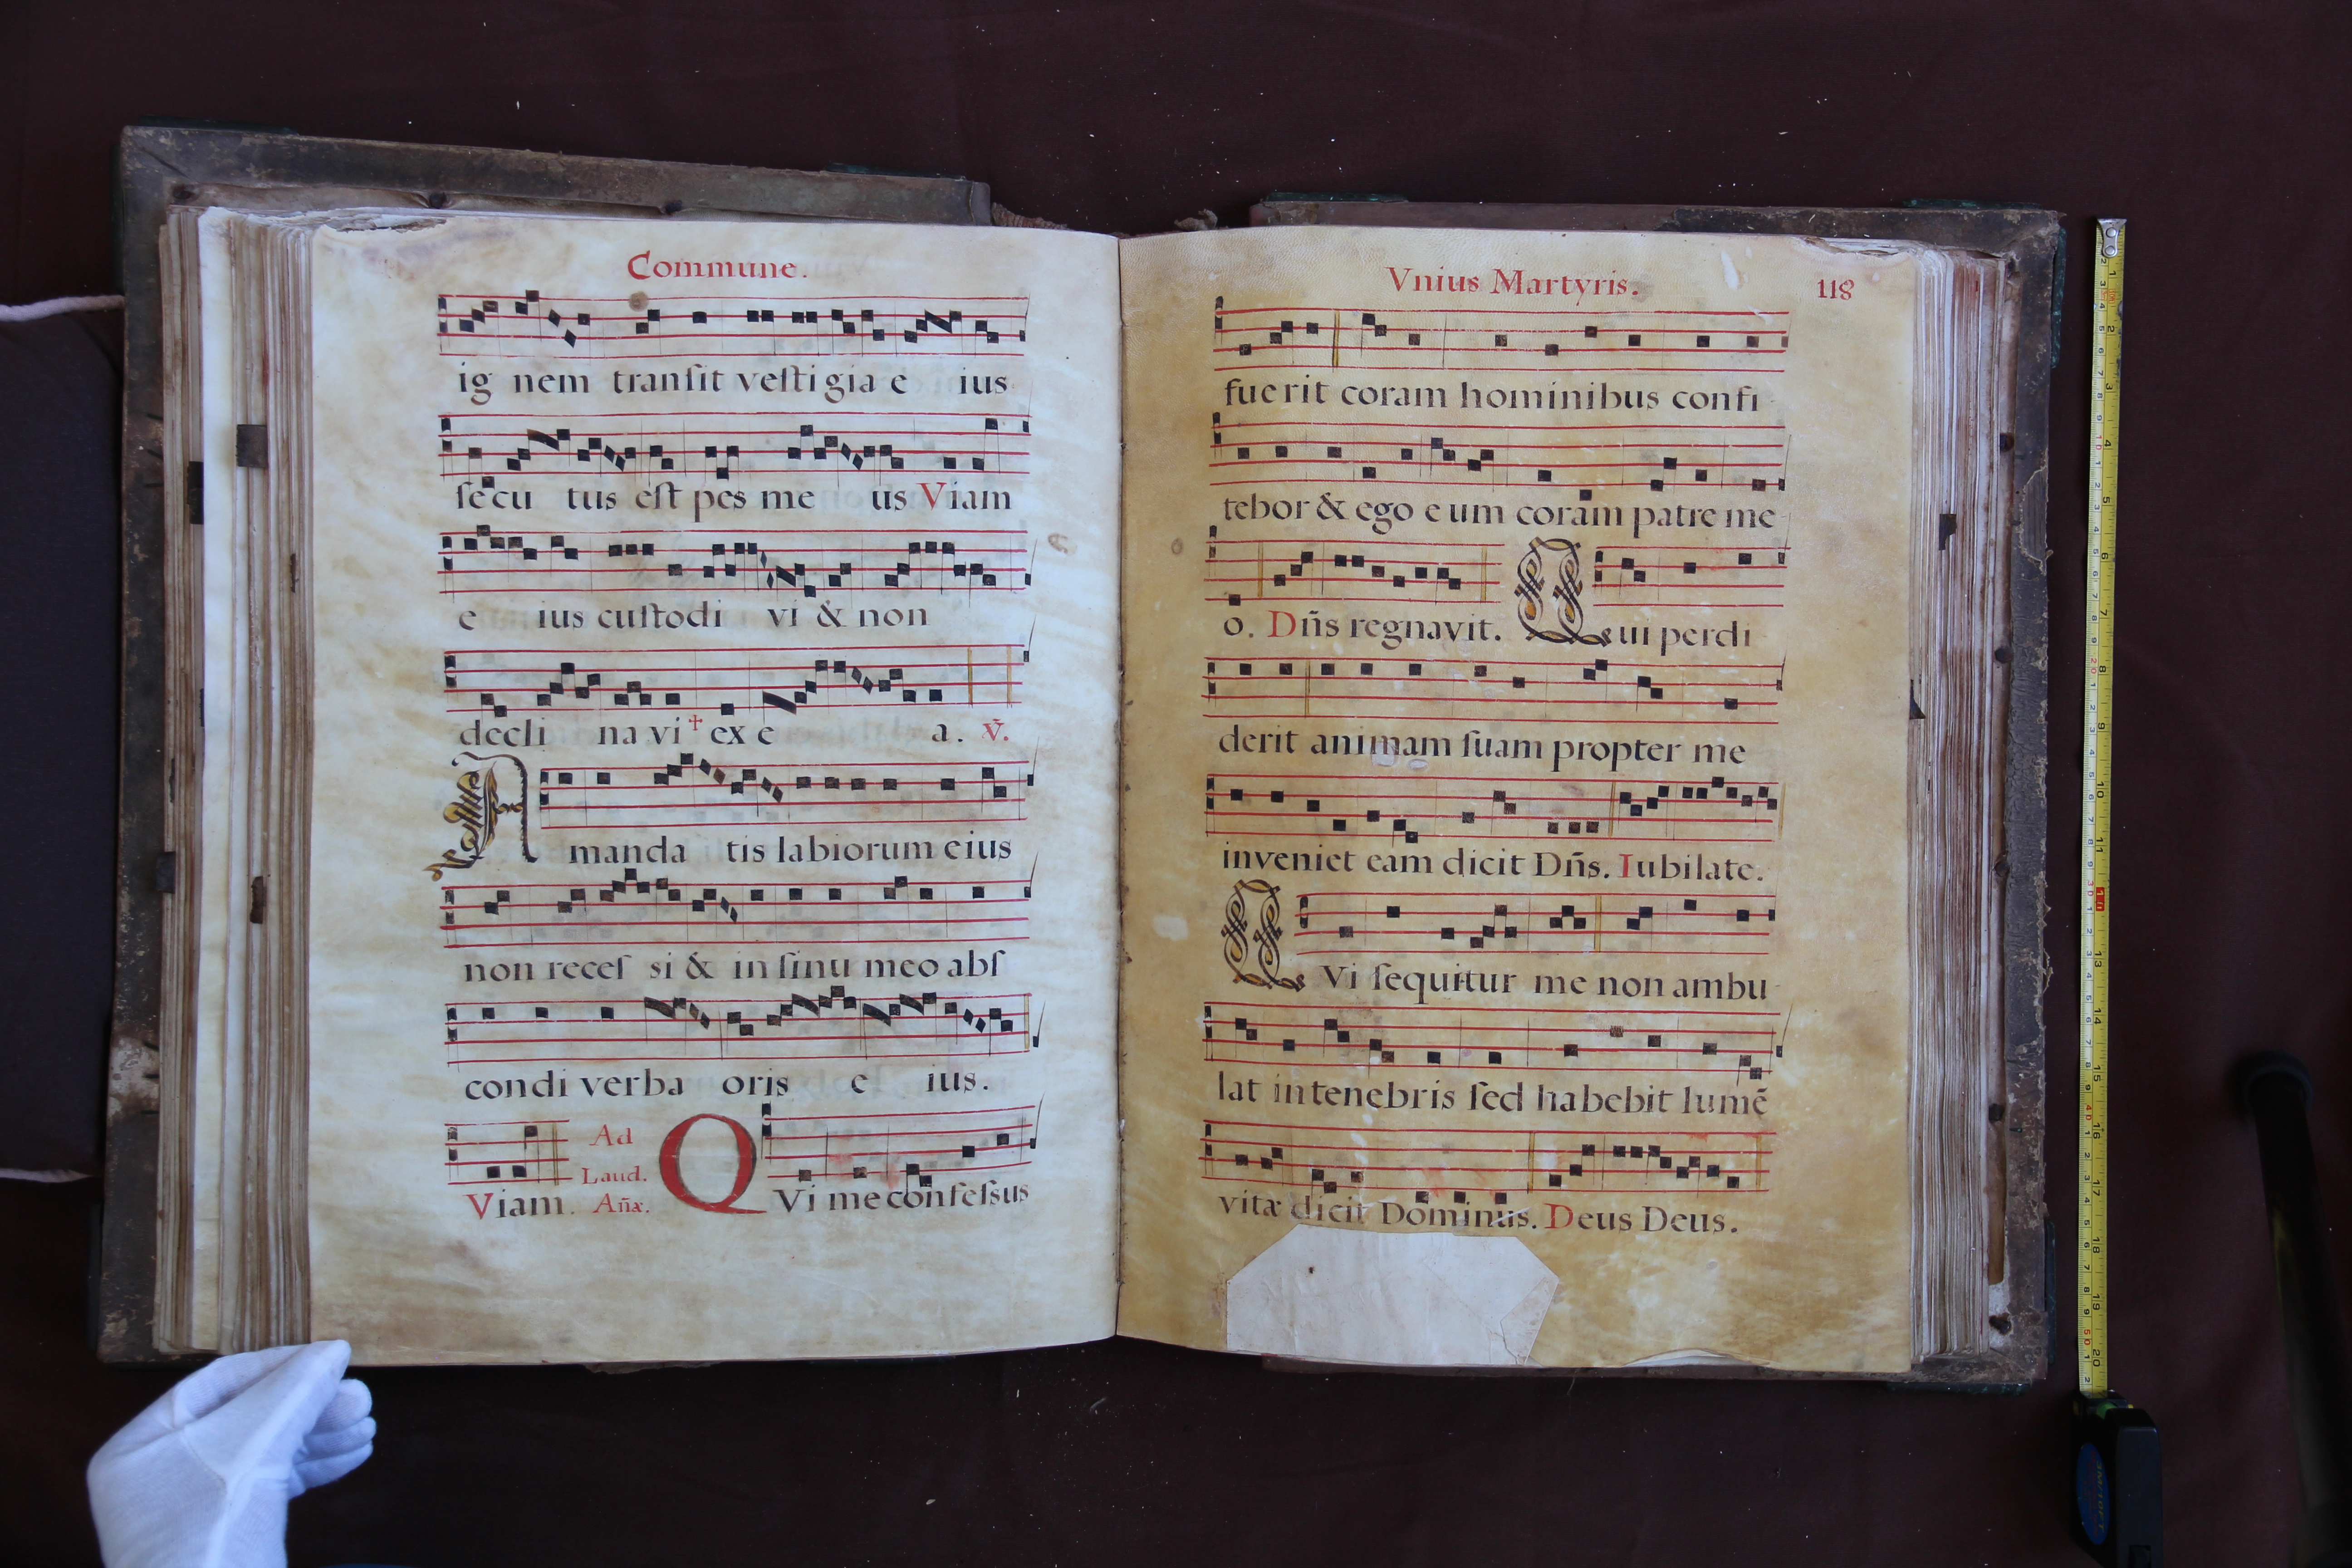 Commune.
ig nem tranſit veſti gia e ius
ſecu tus eſt pes me us Viam
e ius cuſtodi vi & non
decli na vi † ex e a. ℣.
A manda tis labiorum eius
non receſ si & in ſinu meo abſ
condi verba oris e ius.
Viam. Ad Laud. Añæ. QVi me confeſsus
Vnius Martyris. 118
fuerit coram hominibus confi-
tebor & ego e um coram patre me-
o. Dñs regnavit. Qui perdi-
derit animam ſuam propter me
inveniet eam dicit Dñs. Iubilate.
QVi ſequitur me non ambu-
lat in tenebris ſed habebit lumẽ
vitæ dicit Dominus. Deus Deus.